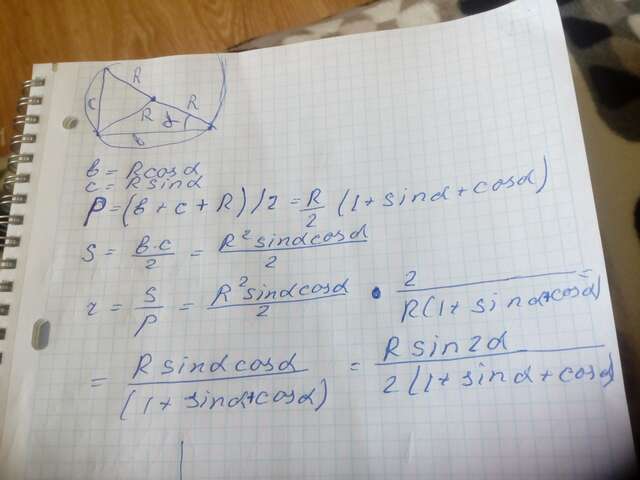 R
c R R α
в
в = R cosα
c = R sinα
P = (в + c + R) / 2 = R/2 (1 + sinα + cosα)
S = в·c/2 = R² sinα cosα/2
r = S/P = R² sinα cosα/2 · 2/R(1 + sinα + cosα) =
= R sinα cosα/(1 + sinα + cosα) = R sin2α/2(1 + sinα + cosα)